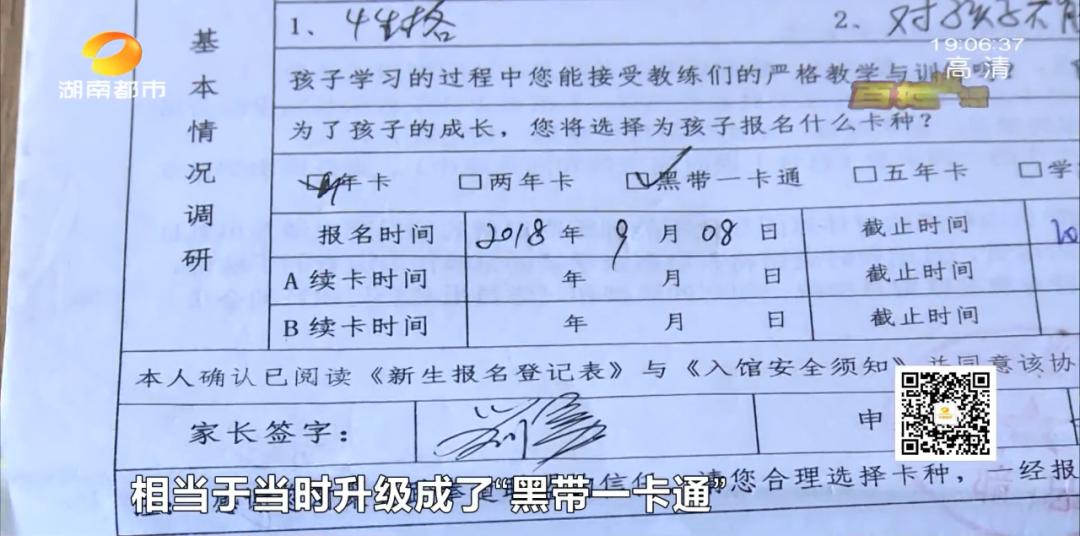 湖南都市
19:06:37
高清
基本情况调研
1、性格
2、对孩子不
孩子学习的过程中您能接受教练们的严格教学与训
为了孩子的成长，您将选择为孩子报名什么卡种？
□年卡 □两年卡 □黑带一卡通 □五年卡 □学
报名时间 2018 年 9 月 08 日 截止时间
A 续卡时间 年 月 日 截止时间
B 续卡时间 年 月 日 截止时间
本人确认已阅读《新生报名登记表》与《入馆安全须知》并同意该协
家长签字： 申
信任，请您合理选择卡种，一经报
相当于当时升级成了“黑带一卡通”